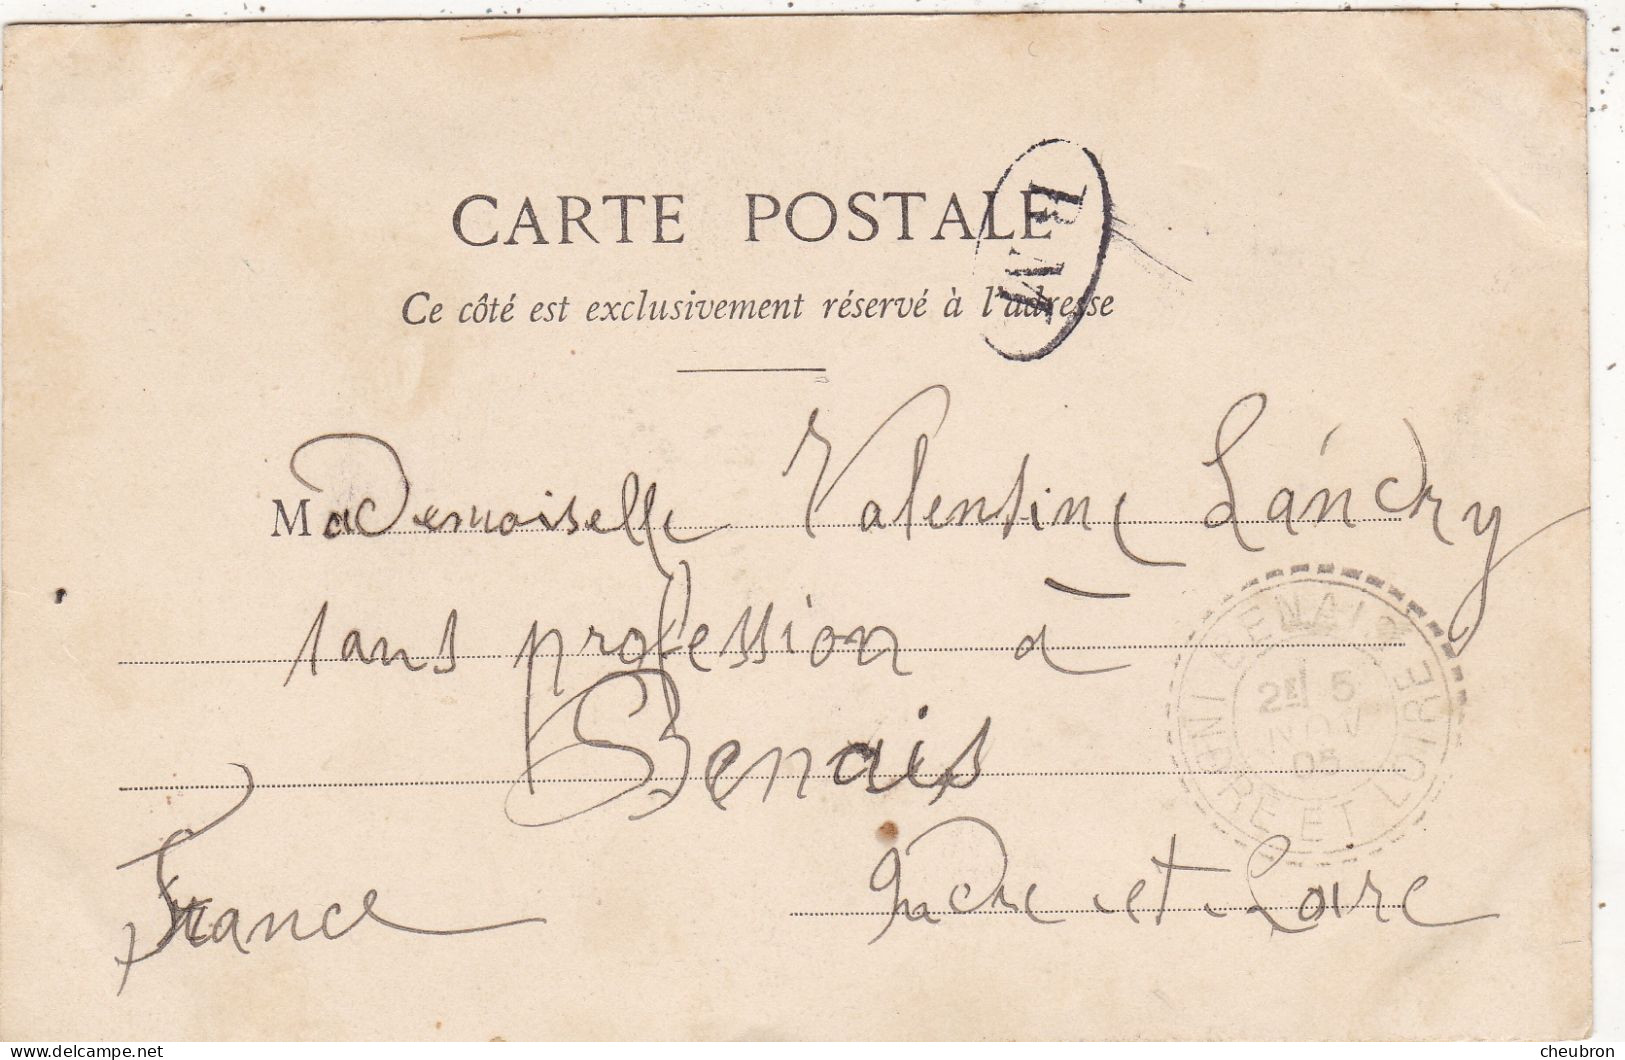 CARTE POSTALE
Ce côté est exclusivement réservé à l'adresse
Mademoiselle Valentine Landry
sans profession à
Benais
Indre-et-Loire
France
2E 5
NOV
05
INDRE ET LOIRE
cheubron@delcampe.net